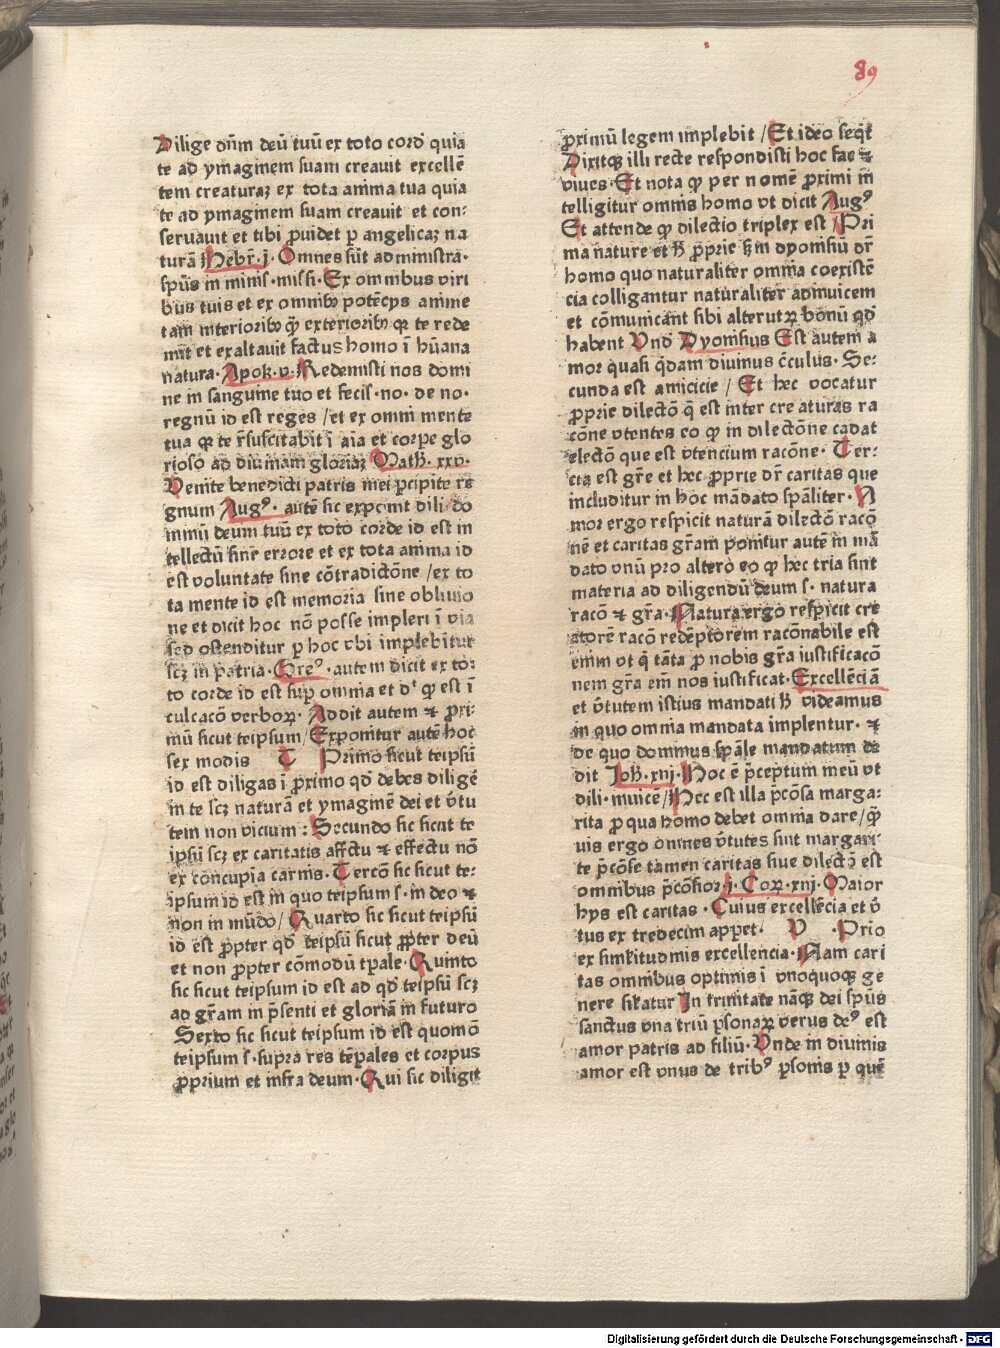 89
Dilige dñm deũ tuũ ex toto cord' quia
te ad ymaginem suam creauit excellẽ
tem creaturaꝫ ex tota anima tua quia
te ad ymaginem suam creauit et con-
seruauit et tibi ꝓuidet ꝑ angelicaꝫ na
turã Hebr̃. j. Omnes sũt administra-
spũs in minis. missi. Ex omnibus viri
bus tuis et ex omnibꝫ potẽcys anime
tam interioribꝫ ꝙ̃ exterioribꝫ qꝛ te rede
mit et exaltauit factus homo ĩ hũana
natura. Apoꝭ. v. Redemisti nos domi
ne in sanguine tuo et fecis. no. de no.
regnũ id est reges / et ex omni mente
tua qꝛ te r̃suscitabit ĩ aĩa et corpe glo
rioso ad diuinam gloriaꝫ Math. xxv.
Venite benedicti patris mei ꝑcipite re
gnum Augꝰ. autẽ sic exponit dili. do
minũ deum tuũ ex toto corde id est in
tellectũ sine errore et ex tota anima id
est voluntate sine cõtradictõne / ex to
ta mente id est memoria sine obliuio
ne et dicit hoc nõ posse impleri ĩ via
sed ostenditur ꝑ hoc vbi implebitur
scꝫ in patria. Greꝰ. autem dicit ex to-
to corde id est sup omnia et d' ꝙ est ĩ
culcacõ verboꝝ. Addit autem ⁊ pri-
mũ sicut teipsum / Exponitur autẽ hoc
sex modis T Primo sicut teipsũ
id est diligas ĩ ꝓximo qd̃ debes diligẽ
in te scꝫ naturã et ymaginẽ dei et ṽtu
tem non vicium : Secundo sic sicut te
ipsũ scꝫ ex caritatis affctu ⁊ effectu nõ
ex concupĩa carnis. Tercõ sic sicut te-
ipsum id est in quo teipsum s. in deo ⁊
non in mũdo / Quarto sic sicut teipsũ
id est ꝓpter qd̃ teipsũ sicut ꝓpter deũ
et non ꝓpter cõmodũ tꝑale. Quinto
sic sicut teipsum id est ad qd̃ teipsũ scꝫ
ad gr̃am in p̃senti et gloriã in futuro
Sexto sic sicut teipsum id est quomõ
teipsum s. supra res tẽpales et corpus
ꝓprium et infra deum. Qui sic diligit
ꝓximũ legem implebit / Et ideo seqt̃
Dixitqꝫ illi recte respondisti hoc fac ⁊
viues. Et nota ꝙ per nomẽ ꝓximi in
telligitur omnis homo vt dicit Augꝰ
Et attende ꝙ dilectio triplex est / Pri
ma nature et h̃ ꝓprie ẜm dyonisiũ dr̃
homo quo naturaliter omnia coexistẽ
cia colligantur naturaliter adinuicem
et cõmunicãnt sibi alterutꝝ bonũ qd̃
habent Vnd̃ Dyonisius Est autem a
mor quasi q̃dam diuinus c̃culus. Se-
cunda est amicicie / Et hec vocatur
ꝓprie dilectõ q̃ est inter creaturas ra
cõne vtentes eo ꝙ in dilectõne cadat
electõ que est vtencium racõne. Ter-
cia est gr̃e et hec ꝓprie dr̃ caritas que
includitur in hoc mãdato spãliter. A
mor ergo respicit naturã dilectõ racõ
nẽ et caritas gr̃am ponitur autẽ in mã
dato vnũ pro altero eo ꝙ hec tria sint
materia ad diligendũ deum s. natura
racõ ⁊ gr̃a. Natura ergo respicit cre
atorẽ racõ redẽptorem racõnabile est
enim vt q̃ tãta ꝓ nobis gr̃a iustificacõ
nem gr̃a em̃ nos iustificat. Excellẽciã
et ṽtutem istius mandati h̃ videamus
in quo omnia mandata implentur. ⁊
de quo dominus spãle mandatum de
dit Joh. xiij. Hoc ẽ p̃ceptum meũ vt
dili. inuicẽ / Hec est illa p̃cõsa marga-
rita ꝓ qua homo debet omnia dare / ꝙ̃
uis ergo omnes ṽtutes sint margari-
te p̃cõse tamen caritas siue dilectõ est
omnibus p̃cõsior. j. Coꝝ. xiij. Maior
hys est caritas. Cuius excellẽcia et ṽ
tus ex tredecim appet. V .Prio
ex similitudinis excellencia. Nam cari
tas omnibus optimis ĩ vnoquoqꝫ ge
nere silatur In trinitate nãqꝫ dei spũs
sanctus vna triũ ꝑsonaꝝ verus deꝰ est
amor patris ad filiũ. Vnde in diuinis
amor est vnus de tribꝰ ꝑsonis ꝑ quẽ
Digitalisierung gefördert durch die Deutsche Forschungsgemeinschaft - DFG